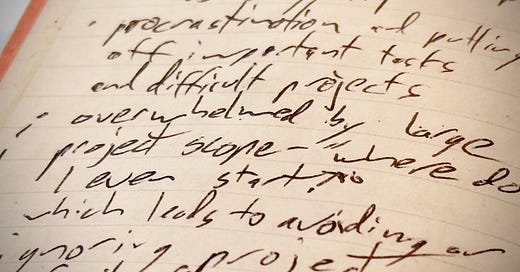 • procrastination and putting
off important tasks
and difficult projects
• overwhelmed by large
project scope – "where do
I even start?"
which leads to avoiding or
ignoring project